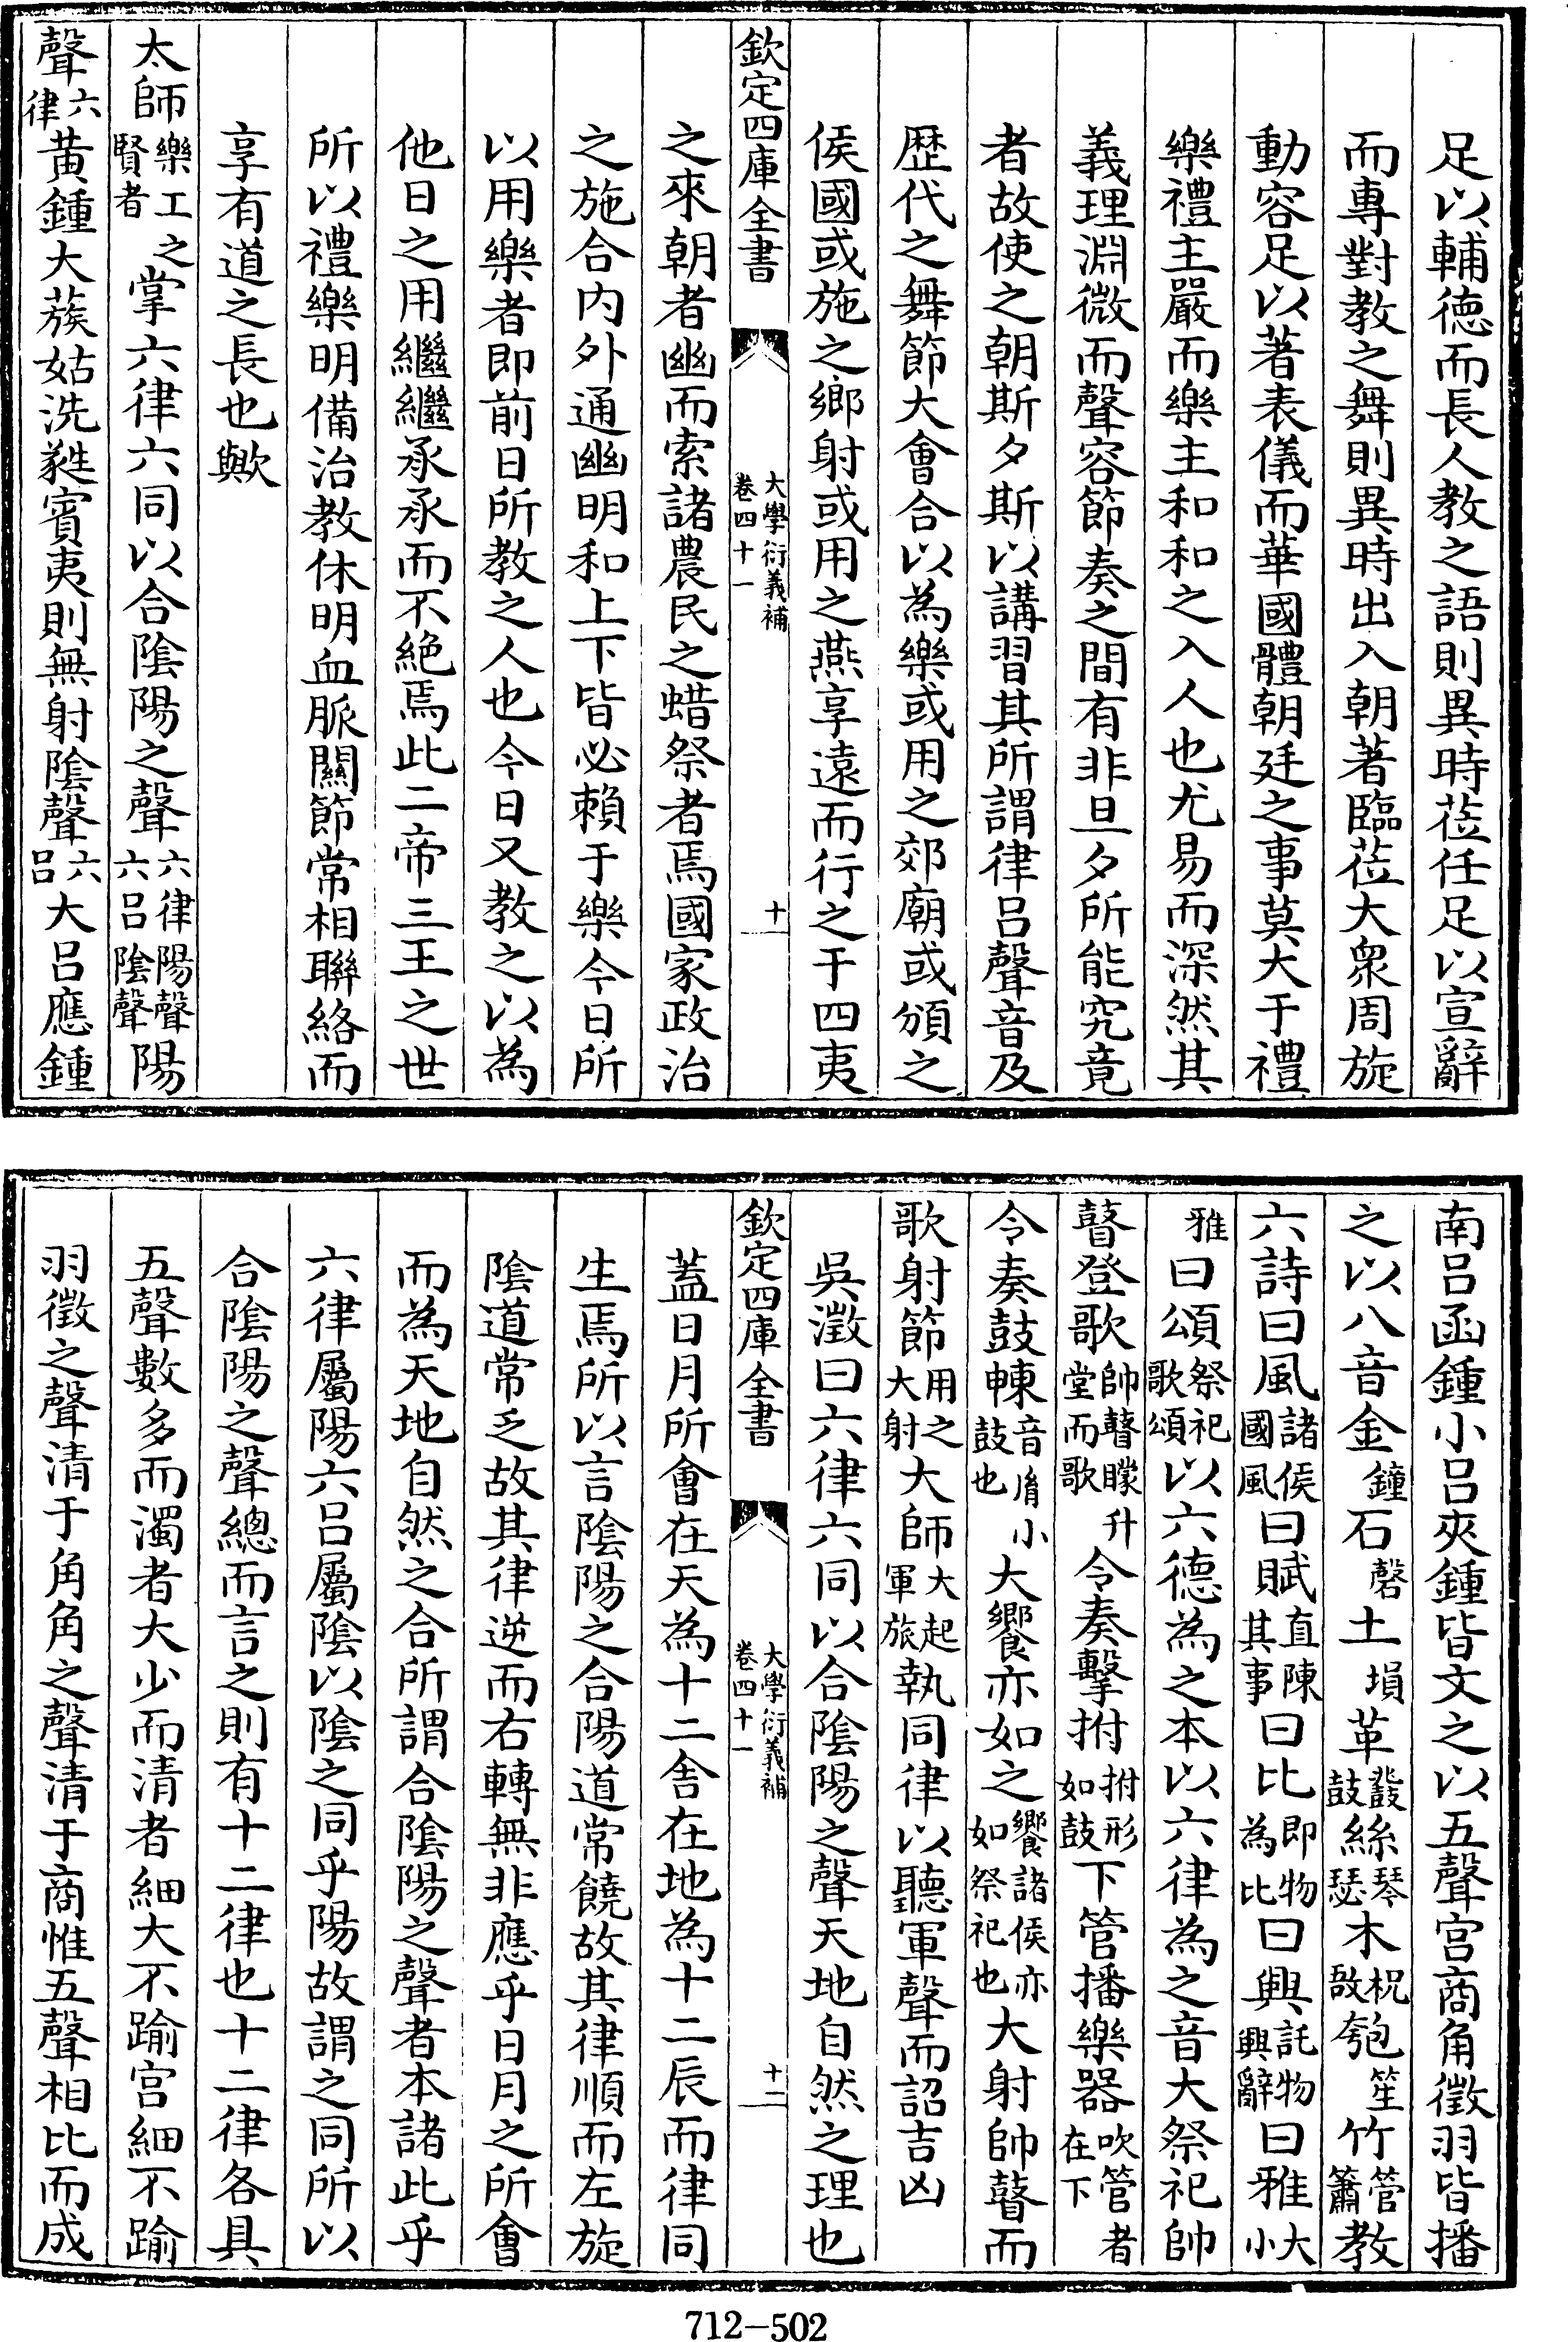 足以輔德而長人教之語則異時莅任足以宣辭
而專對教之舞則異時出入朝著臨莅大衆周旋
動容足以著表儀而華國體朝廷之事莫大于禮
樂禮主嚴而樂主和和之入人也尤易而深然其
義理淵微而聲容節奏之間有非旦夕所能究竟
者故使之朝斯夕斯以講習其所謂律呂聲音及
歴代之舞節大會合以為樂或用之郊廟或頒之
侯國或施之鄉射或用之燕享遠而行之于四夷
欽定四庫全書 大學衍義補 卷四十一 十一
之來朝者幽而索諸農民之蜡祭者焉國家政治
之施合内外通幽明和上下皆必賴于樂今日所
以用樂者即前日所教之人也今日又教之以為
他日之用繼繼承承而不絶焉此二帝三王之世
所以禮樂明備治教休明血脈關節常相聯絡而
享有道之長也歟
太師樂工之賢者掌六律六同以合隂陽之聲六律陽聲六呂隂聲陽
聲六律黃鍾大蔟姑洗蕤賓夷則無射隂聲六呂大呂應鍾
南呂函鍾小呂夾鍾皆文之以五聲宫商角徵羽皆播
之以八音金鐘石磬土塤革鼗鼓絲琴瑟木柷敔匏笙竹管簫教
六詩曰風諸侯國風曰賦直陳其事曰比即物為比曰興託物興辭曰雅大小
雅曰頌祭祀歌頌以六德為之本以六律為之音大祭祀帥
瞽登歌帥瞽矇升堂而歌令奏擊拊拊形如鼓下管播樂器吹管者在下
令奏鼓朄音胤小鼓也大饗亦如之饗諸侯亦如祭祀也大射帥瞽而
歌射節用之大射大師大起軍旅執同律以聽軍聲而詔吉凶
吳澂曰六律六同以合隂陽之聲天地自然之理也
欽定四庫全書 大學衍義補 卷四十一 十二
蓋日月所會在天為十二舍在地為十二辰而律同
生焉所以言隂陽之合陽道常饒故其律順而左旋
隂道常乏故其律逆而右轉無非應乎日月之所會
而為天地自然之合所謂合隂陽之聲者本諸此乎
六律屬陽六呂屬隂以隂之同乎陽故謂之同所以
合隂陽之聲總而言之則有十二律也十二律各具
五聲數多而濁者大少而清者細大不踰宫細不踰
羽徵之聲清于角角之聲清于商惟五聲相比而成
712-502